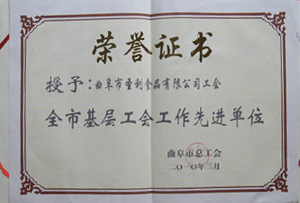 荣誉证书
授予：曲阜市圣利食品有限公司工会
全市基层工会工作先进单位
曲阜市总工会
二〇一〇年三月